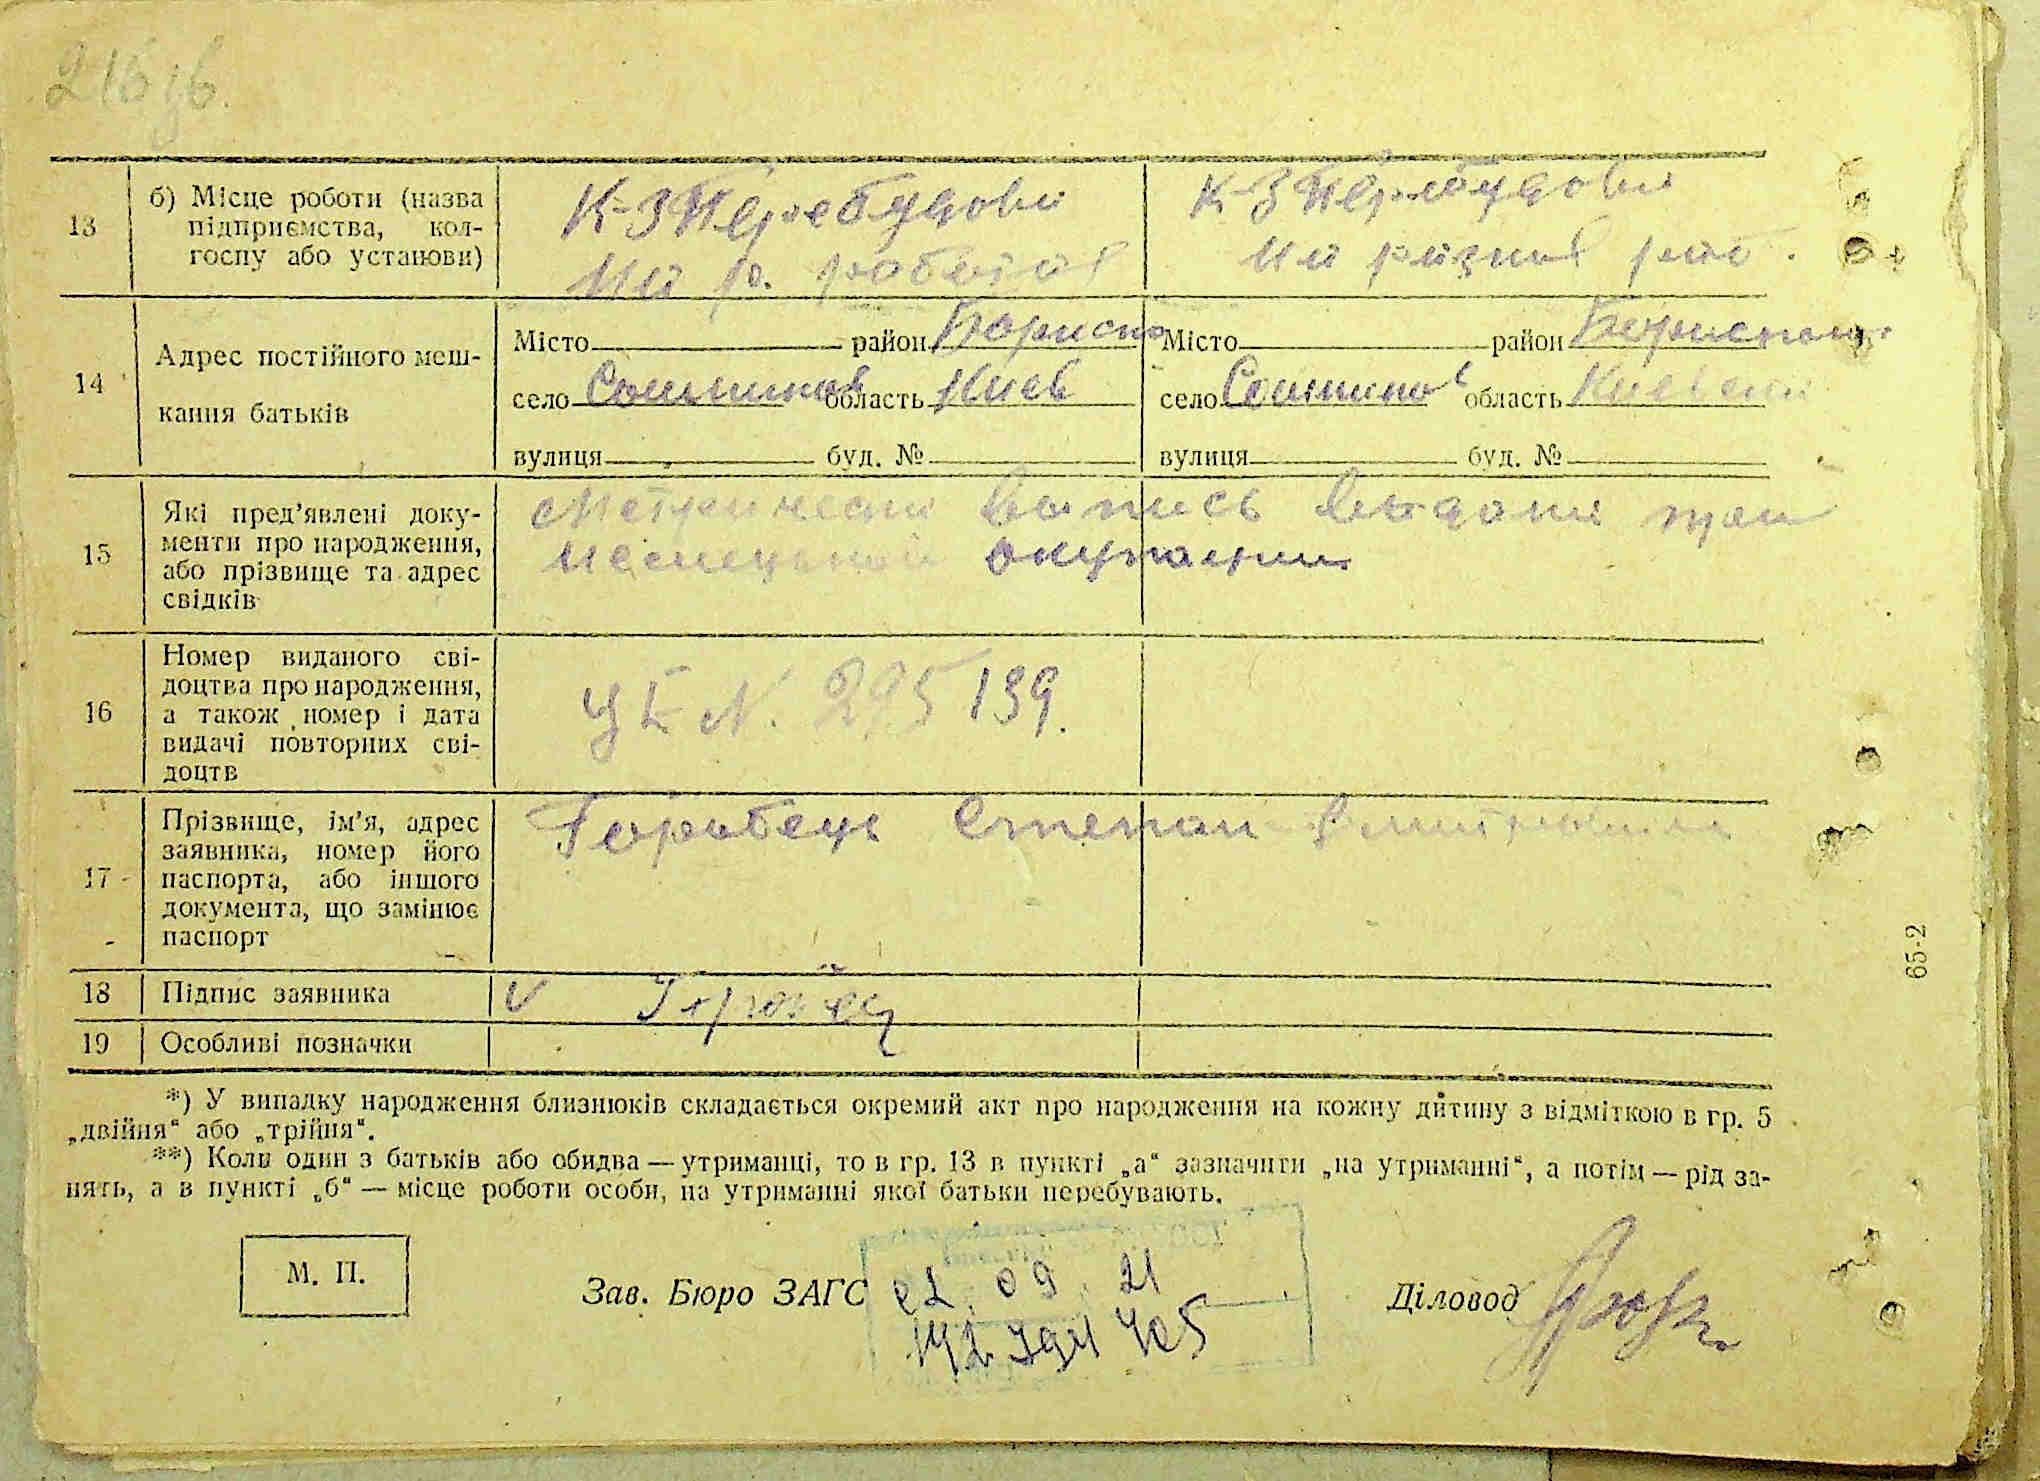 216
13
б) Місце роботи (назва
підприємства, кол-
госпу або установи)
К-З Перебудови
На р. роботах
К-З Перебудови
На різних роб.
14
Адрес постійного меш-
кання батьків
Місто район Бориспо
село область Киев
вулиця буд. №
Місто район
село область
вулиця буд. №
15
Які пред'явлені доку-
менти про народження,
або прізвище та адрес
свідків
окупации
16
Номер виданого сві-
доцтва про народження,
а також номер і дата
видачі повторних сві-
доцтв
N. 295139.
17
Прізвище, ім'я, адрес
заявника, номер його
паспорта, або іншого
документа, що замінює
паспорт
Горобець Степан
18
Підпис заявника
V
19
Особливі позначки
*) У випадку народження близнюків складається окремий акт про народження на кожну дитину з відміткою в гр. 5
„двійня“ або „трійня“.
**) Коли один з батьків або обидва — утриманці, то в гр. 13 в пункті „а“ зазначити „на утриманні“, а потім — рід за-
нять, а в пункті „б“ — місце роботи особи, на утриманні якої батьки перебувають.
М. П.
Зав. Бюро ЗАГС
Діловод
65-2